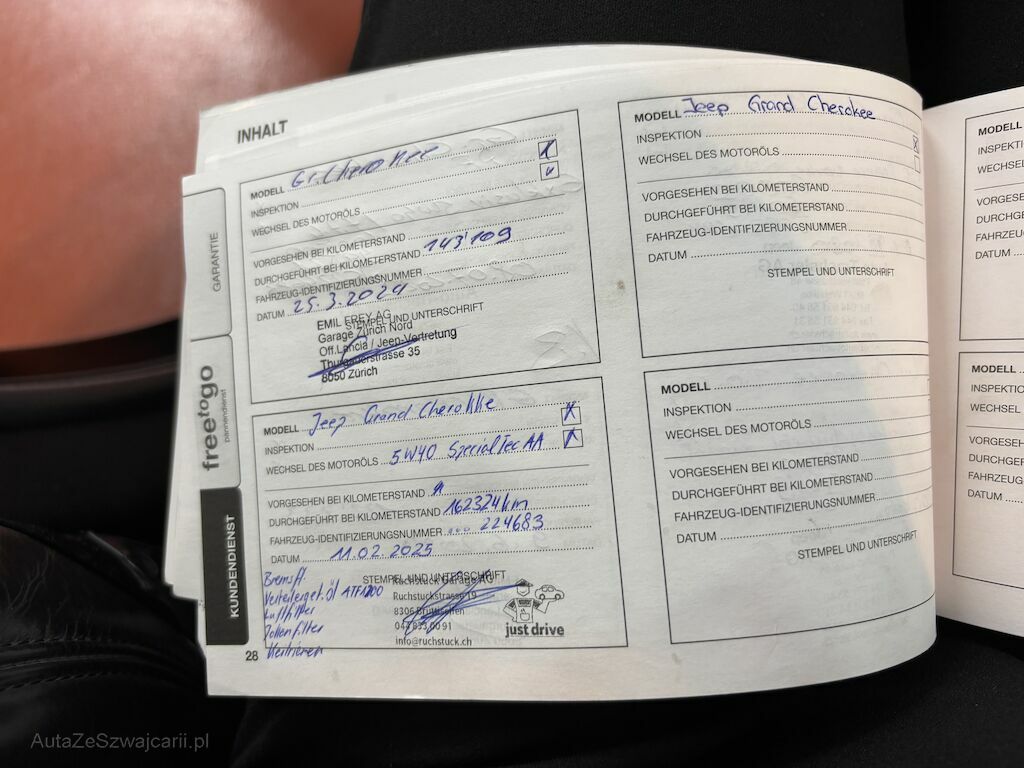 INHALT
GARANTIE
freetogo
pannendienst
KUNDENDIENST
MODELL Gr. Cherokee
INSPEKTION X
WECHSEL DES MOTORÖLS
VORGESEHEN BEI KILOMETERSTAND
DURCHGEFÜHRT BEI KILOMETERSTAND 143'109
FAHRZEUG-IDENTIFIZIERUNGSNUMMER
DATUM 25.3.2024
STEMPEL UND UNTERSCHRIFT
EMIL FREY AG
Garage Zürich Nord
Off. Lancia / Jeep-Vertretung
Thurgauerstrasse 35
8050 Zürich
MODELL Jeep Grand Cherokke
INSPEKTION X
WECHSEL DES MOTORÖLS 5W40 Special Tec AA X
VORGESEHEN BEI KILOMETERSTAND
DURCHGEFÜHRT BEI KILOMETERSTAND 162324km
FAHRZEUG-IDENTIFIZIERUNGSNUMMER ... 224683
DATUM 11.02.2025
STEMPEL UND UNTERSCHRIFT
Bremsfl.
Verteilerget. Öl ATF 1200
Luftfilter
Pollenfilter
Ruchstuck Garage AG
Ruchstuckstrasse 19
8306 Brüttisellen
044 833 00 91
info@ruchstuck.ch
just drive
28
MODELL Jeep Grand Cherokee
INSPEKTION X
WECHSEL DES MOTORÖLS
VORGESEHEN BEI KILOMETERSTAND
DURCHGEFÜHRT BEI KILOMETERSTAND
FAHRZEUG-IDENTIFIZIERUNGSNUMMER
DATUM
STEMPEL UND UNTERSCHRIFT
MODELL
INSPEKTION
WECHSEL DES MOTORÖLS
VORGESEHEN BEI KILOMETERSTAND
DURCHGEFÜHRT BEI KILOMETERSTAND
FAHRZEUG-IDENTIFIZIERUNGSNUMMER
DATUM
STEMPEL UND UNTERSCHRIFT
MODELL
DATUM
MODELL
INSPEKTION
WECHSEL
DATUM
AutaZeSzwajcarii.pl